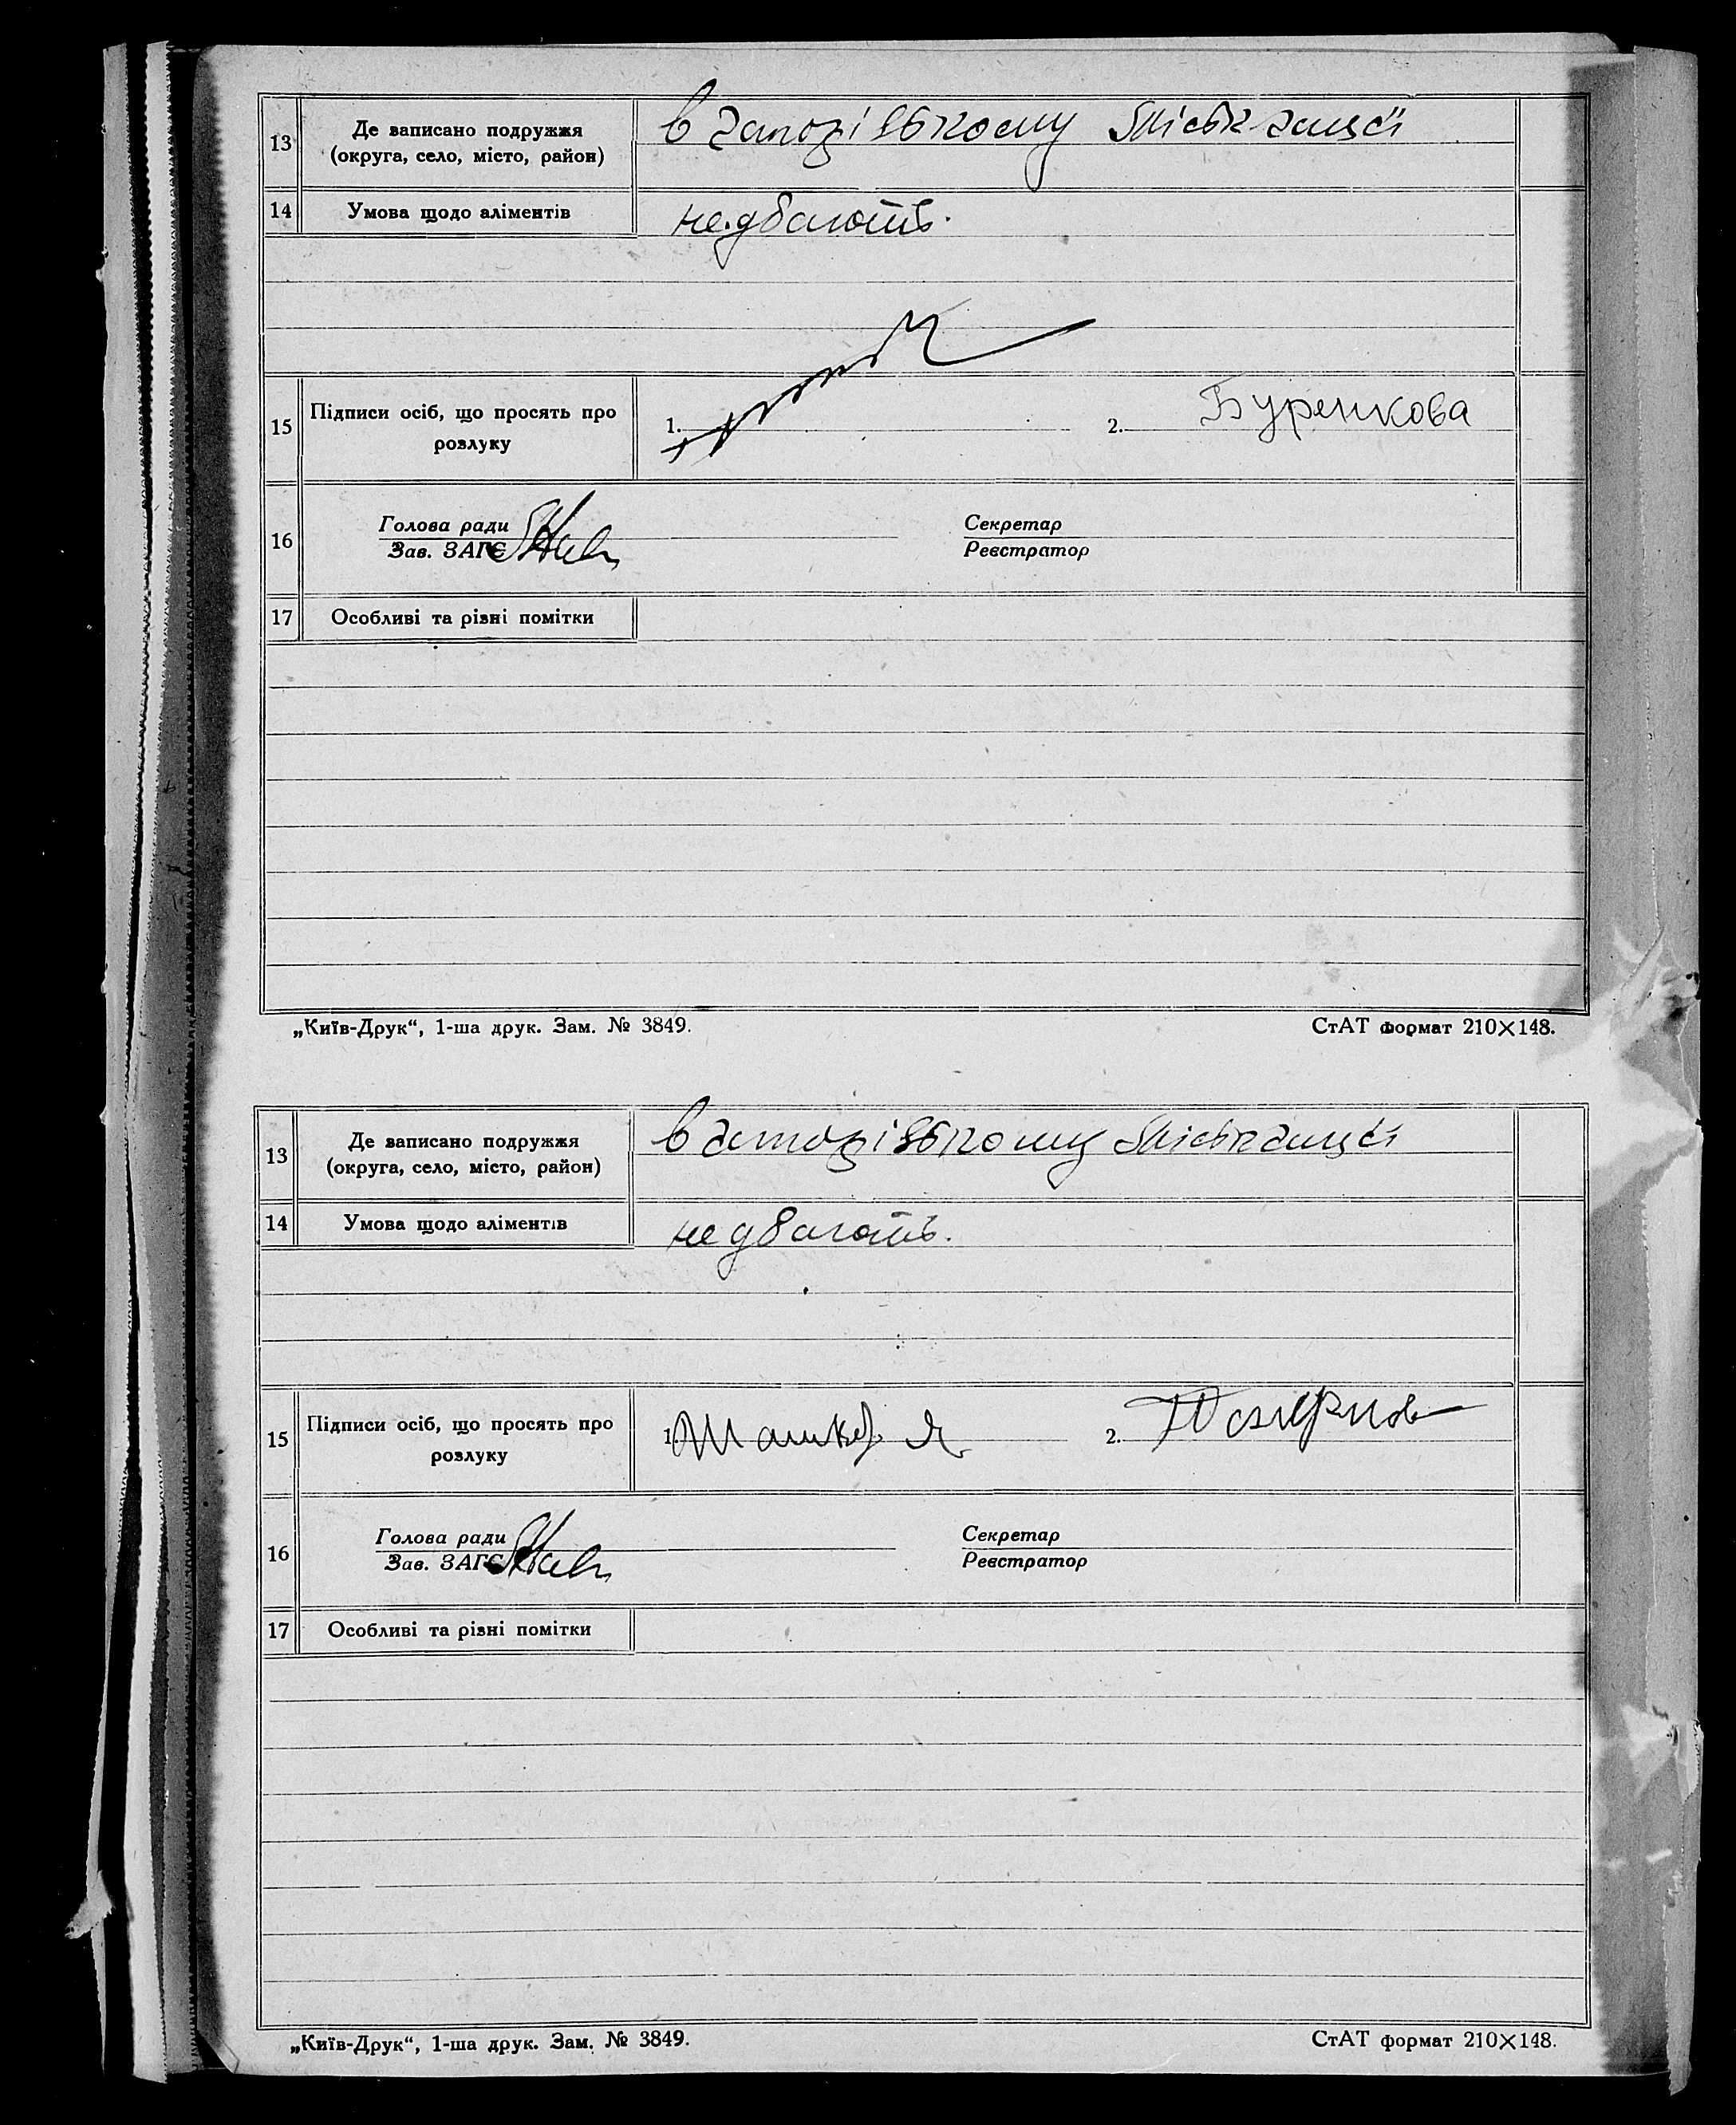 13
Де записано подружжя
(округа, село, місто, район)
в запорізькому міськзагсі
14
Умова щодо аліментів
не дбають.
15
Підписи осіб, що просять про
розлуку
1.
2. Буренкова
16
Голова ради
Зав. ЗАГС
Секретар
Реєстратор
17
Особливі та різні помітки
„Київ-Друк“, 1-ша друк. Зам. № 3849.
СтАТ формат 210×148.
13
Де записано подружжя
(округа, село, місто, район)
в запорізькому міськзагсі
14
Умова щодо аліментів
не дбають.
15
Підписи осіб, що просять про
розлуку
1.
2.
16
Голова ради
Зав. ЗАГС
Секретар
Реєстратор
17
Особливі та різні помітки
„Київ-Друк“, 1-ша друк. Зам. № 3849.
СтАТ формат 210×148.